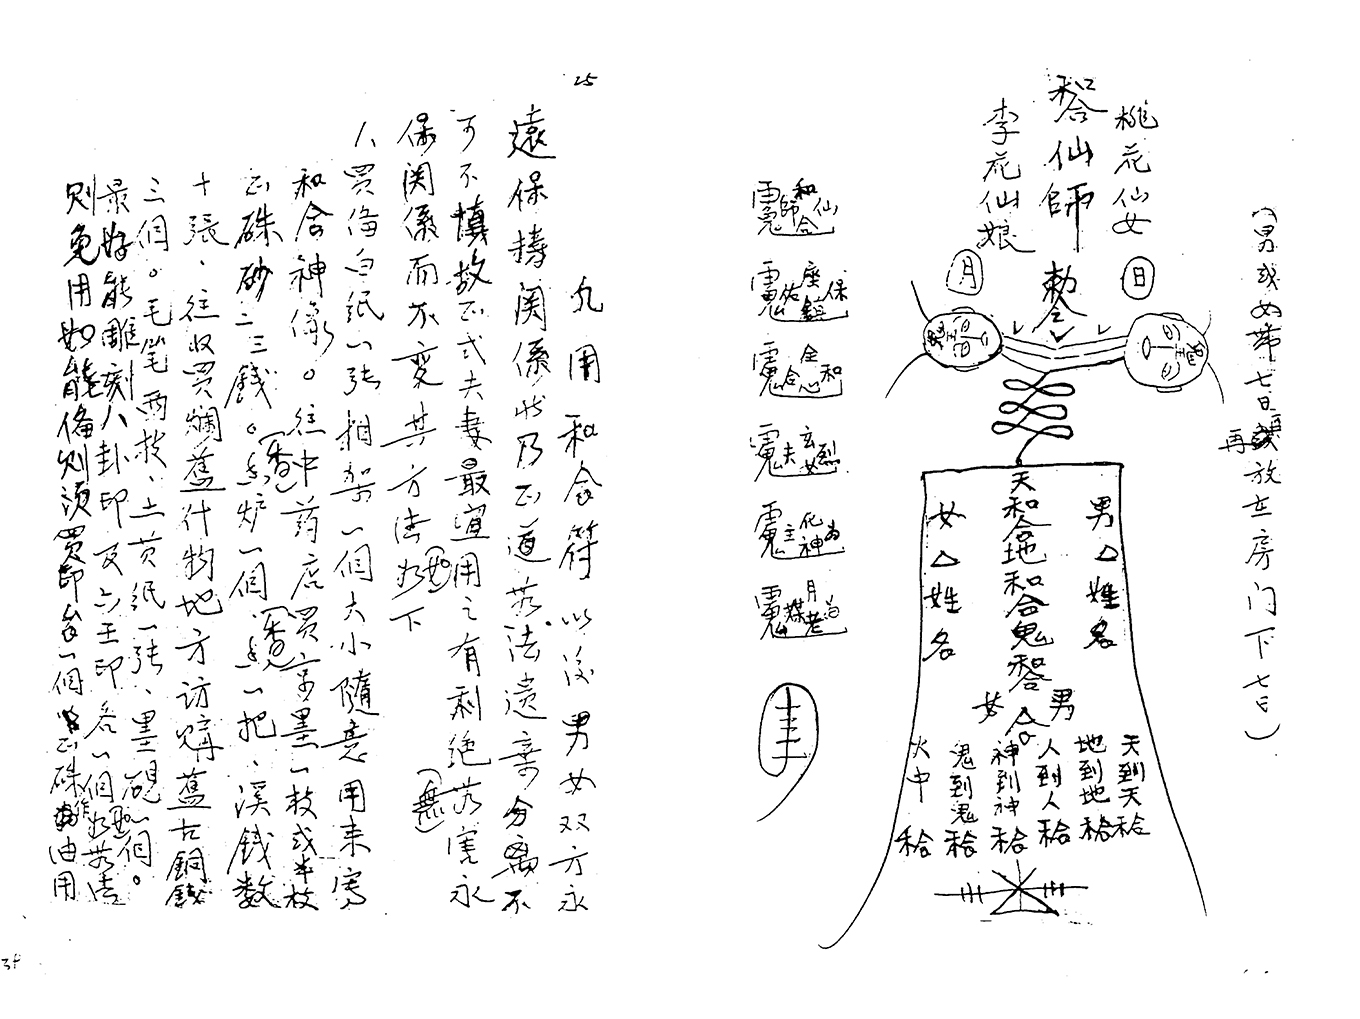 (男或女带七日再放在房门下七日)
桃花仙女
和合仙師
李花仙娘
日
敕令
月
男△姓名
天和合地和合鬼和合
女△姓名
男
女
合
天到天和合
地到地和合
人到人和合
神到神和合
鬼到鬼和合
火中和合
和合仙師
保座
佑
和合全心
玄女
夫
化神为
主
月老
媒
25
凡用和合符以后男女双方永
遠保持関係此乃正道若法遺弃分离不
可不慎故正式夫妻最宜用之有刺绝若害永
保関係而不变其方法如下
(無)
八買俻白紙一張相架一個大小隨意用来寫
和合神像。往中药店買京墨一枝或半枝
正硃砂二三銭。香炉一個香一把、溪銭数
(香)
(香)
十張、往收買爛舊什物地方访購舊古銅銭
三個。毛笔两枝、土黄紙一張、墨硯一個。
最好能雕刻八卦印及六王印各一個如若法
則免用如能俻則須買印台一個正硃油用